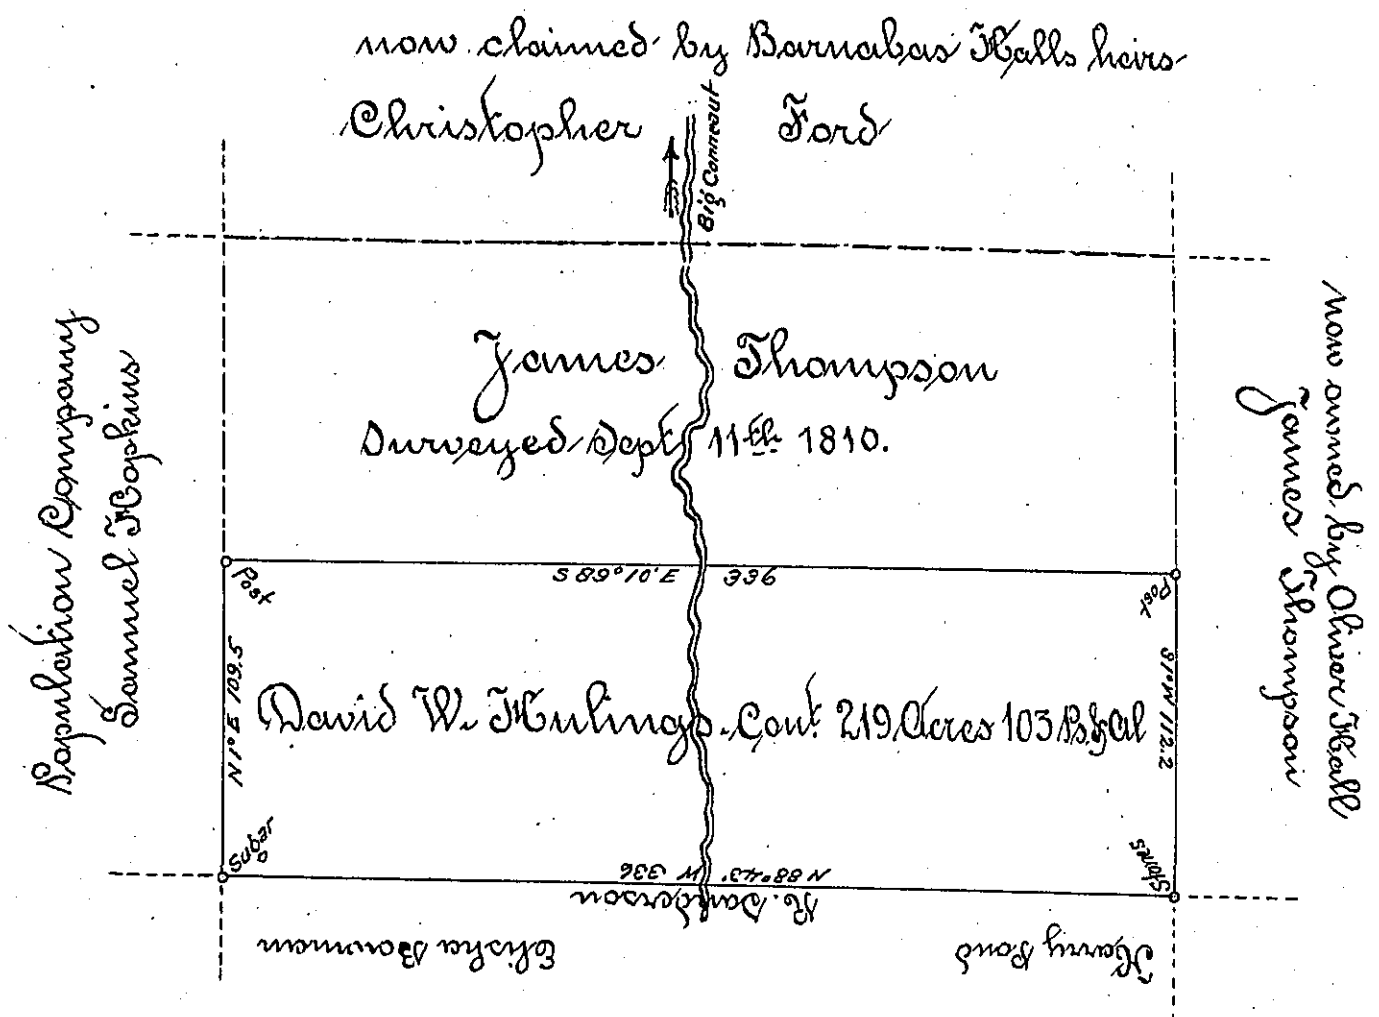 now claimed by Barnabas Halls heirs
Christopher Ford
Big Conneaut
James Thompson
Surveyed Sept 11th 1810.
Population Company
Samuel Hopkins
now owned by Oliver Hall
James Thompson
Post
S 89° 10' E 336
Post
N 1° E 109.5
David W. Hulings. Cont. 219 Acres 103 Ps. & Al
S 1° W 112.2
Sugar
Stones
N 88° 43' W 336
R. Sanderson
Elisha Bowman
Harry